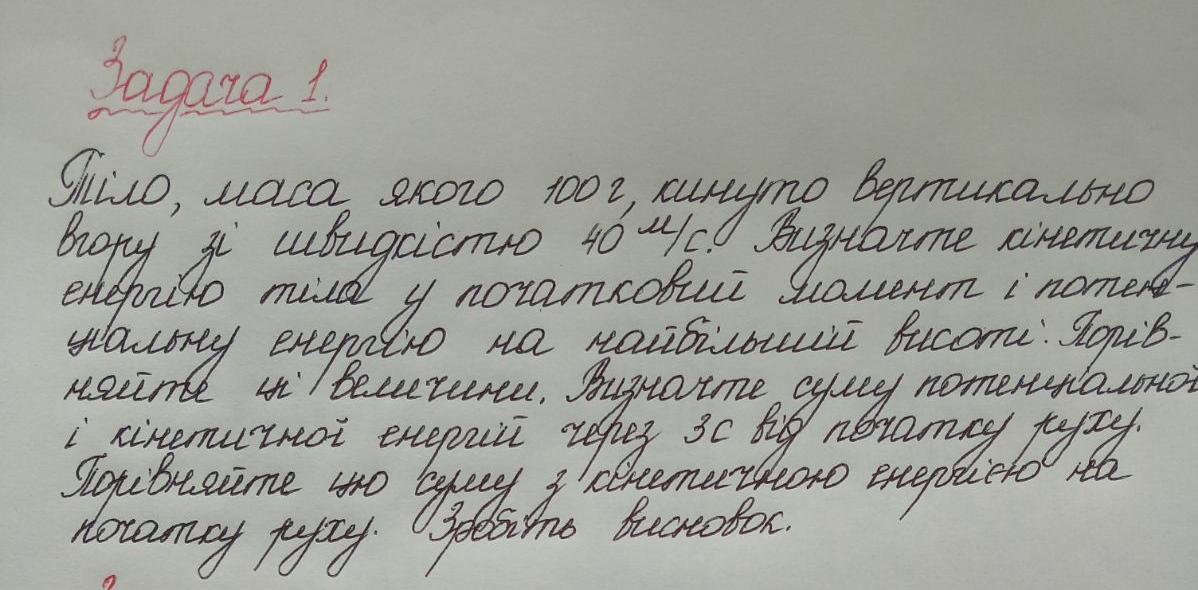 Задача 1.
Тіло, маса якого 100 г, кинуто вертикально
вгору зі швидкістю 40 м/с. Визначте кінетичну
енергію тіла у початковий момент і потен-
ціальну енергію на найбільшій висоті. Порів-
няйте ці величини. Визначте суму потенціальної
і кінетичної енергій через 3с від початку руху.
Порівняйте цю суму з кінетичною енергією на
початку руху. Зробіть висновок.